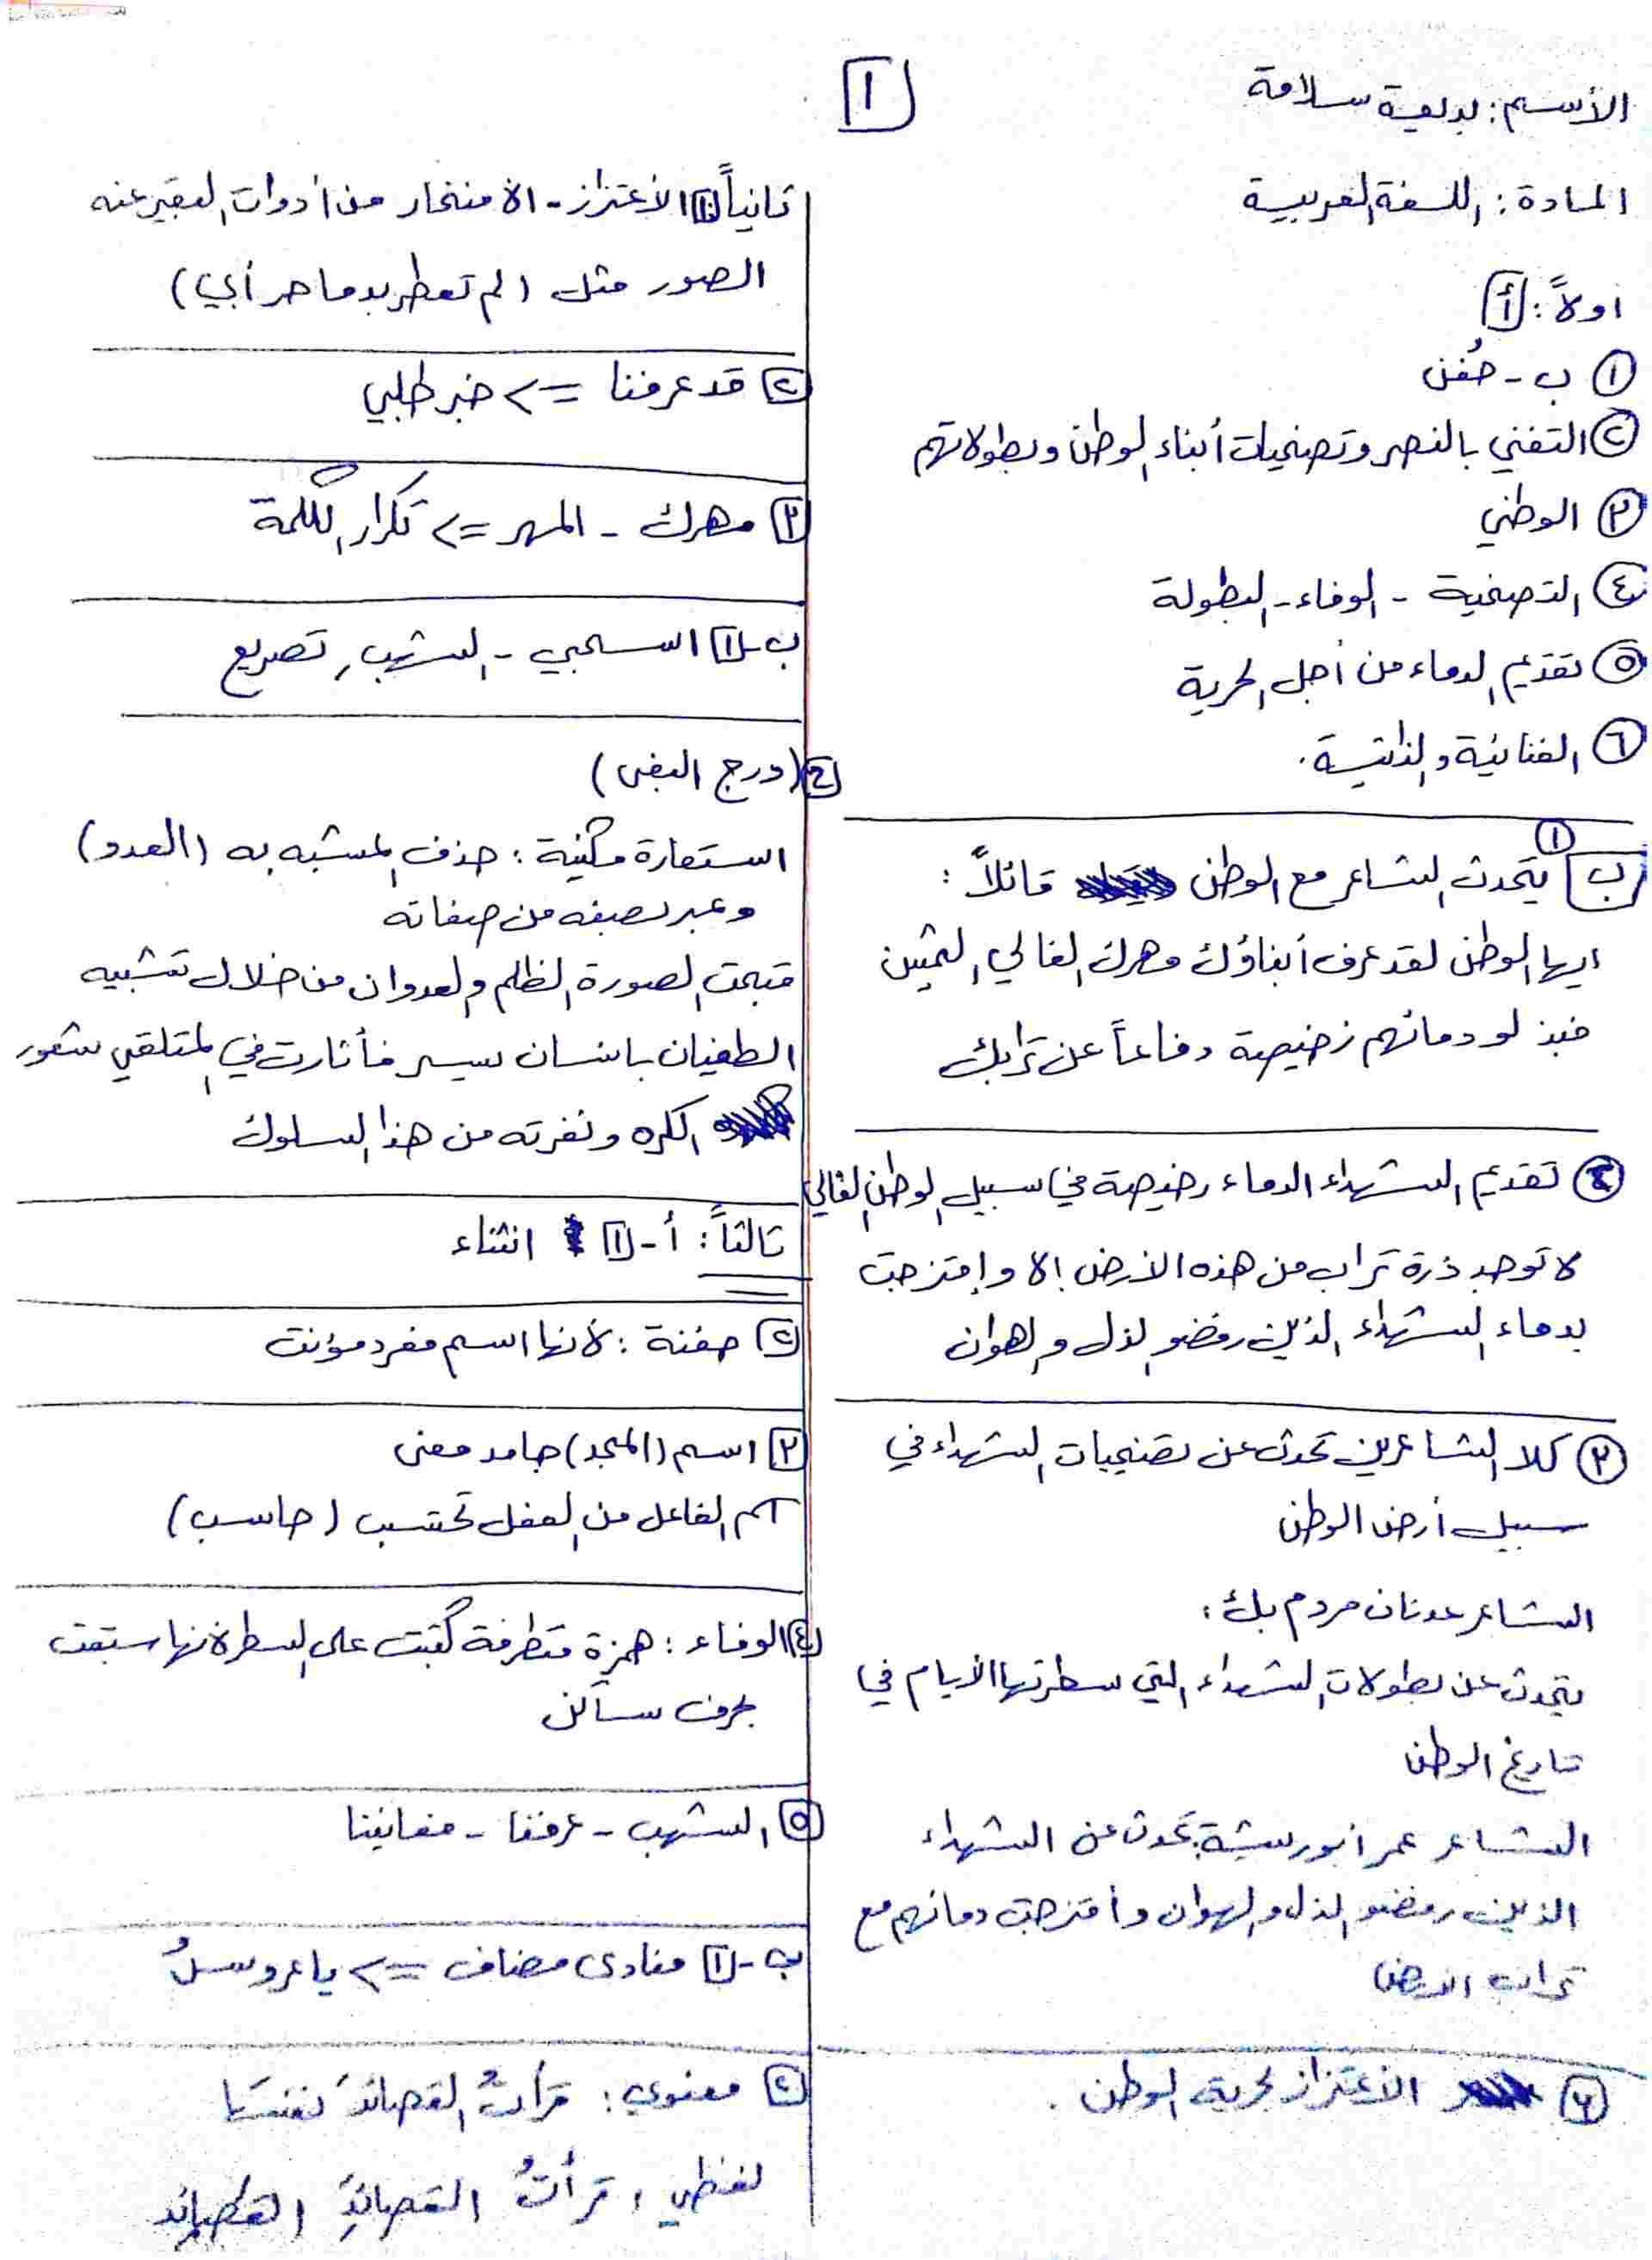 ١
الأسم: بديعة سلامة
المادة: اللغة العربية
اولاً: أ
١ ب - حُفن
٢ التغني بالنصر وتضحيات أبناء الوطن وبطولاتهم
٣ الوطني
٤ التضحية - الوفاء - البطولة
٥ تقديم الدماء من أجل الحرية
٦ الغنائية والذاتية.
ب ١ يتحدث الشاعر مع الوطن قائلاً:
ايها الوطن لقد عرف أبناؤك مهرك الغالي الثمين
فبذلو دمائهم رخيصة دفاعاً عن ترابك
٢ تقديم الشهداء الدماء رخيصة في سبيل الوطن الغالي
لا توجد ذرة تراب من هذه الأرض إلا وإمتزجت
بدماء الشهداء الذين رفضو الذل والهوان
٣ كلا الشاعرين تحدث عن تضحيات الشهداء في
سبيل أرض الوطن
الشاعر عدنان مردم بك:
يتحدث عن بطولات الشهداء التي سطرتها الأيام في
تاريخ الوطن
الشاعر عمر أبو ريشة تحدث عن الشهداء
الذين رفضو الذل والهوان وأمتزجت دمائهم مع
تراب الارض
٤ الأعتزاز بحرية الوطن.
ثانياً ١ الأعتزاز - الأفتخار من أدوات التعبير عنه
الصور مثل (لم تعطر بدما حر أبي)
٢ قد عرفنا => خبر طلبي
٣ مهرك - المهر => تكرار الكلمة
ب - ١ اسحبي - الشهب، تصريع
٢ (درج البغي)
استعارة مكنية: حذف المشبه به (العدو)
وعبر بصفه من صفاته
قبحت الصورة الظلم والعدوان من خلال تشبيه
الطغيان بانسان يسير فأثارت في المتلقي شعور
الكره ونفرته من هذا السلوك
ثالثاً: أ - ١ انشاء
٢ حفنة: لأنها اسم مفرد مؤنث
٣ اسم (المجد) جامد معنى
اسم الفاعل من الفعل تحتسب (حاسب)
٤ الوفاء: همزة متطرفة كتبت على السطر لأنها سبقت
بحرف ساكن
٥ الشهب - عرفنا - مغانينا
ب - ١ منادى مضاف => يا عروسُ
٢ معنوي: قرأتُ القصائدَ نفسَها
لفظي: قرأتُ القصائدَ القصائد